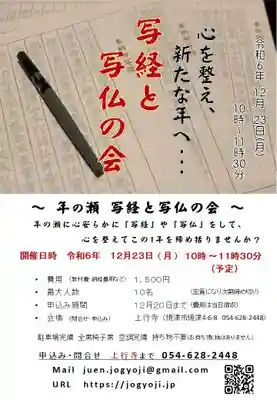 令和6年 12月23日(月)
10時~11時30分
心を整え、
新たな年へ・・・
写経と
写仏の会
~ 年の瀬 写経と写仏の会 ~
年の瀬に心安らかに「写経」や「写仏」をして、
心を整えてこの1年を締め括りませんか?
開催日時 令和6年 12月23日(月)10時~11時30分
(予定)
・ 費用 (教材費・納経費用など) 1,500円
・ 最大人数 10名 (定員になり次第締め切り)
・ 申込み期間 12月20日まで(費用は当日徴収)
・ 会場 (問合せ・申込み) 上行寺(焼津市焼津4-6-8 054-628-2448)
駐車場完備 全席椅子席 空調完備 持ち物不要(お持ち頂く物はありません)
申込み・問合せ 上行寺まで 054-628-2448
Mail juen.jogyoji@gmail.com
URL https://jogyoji.jp